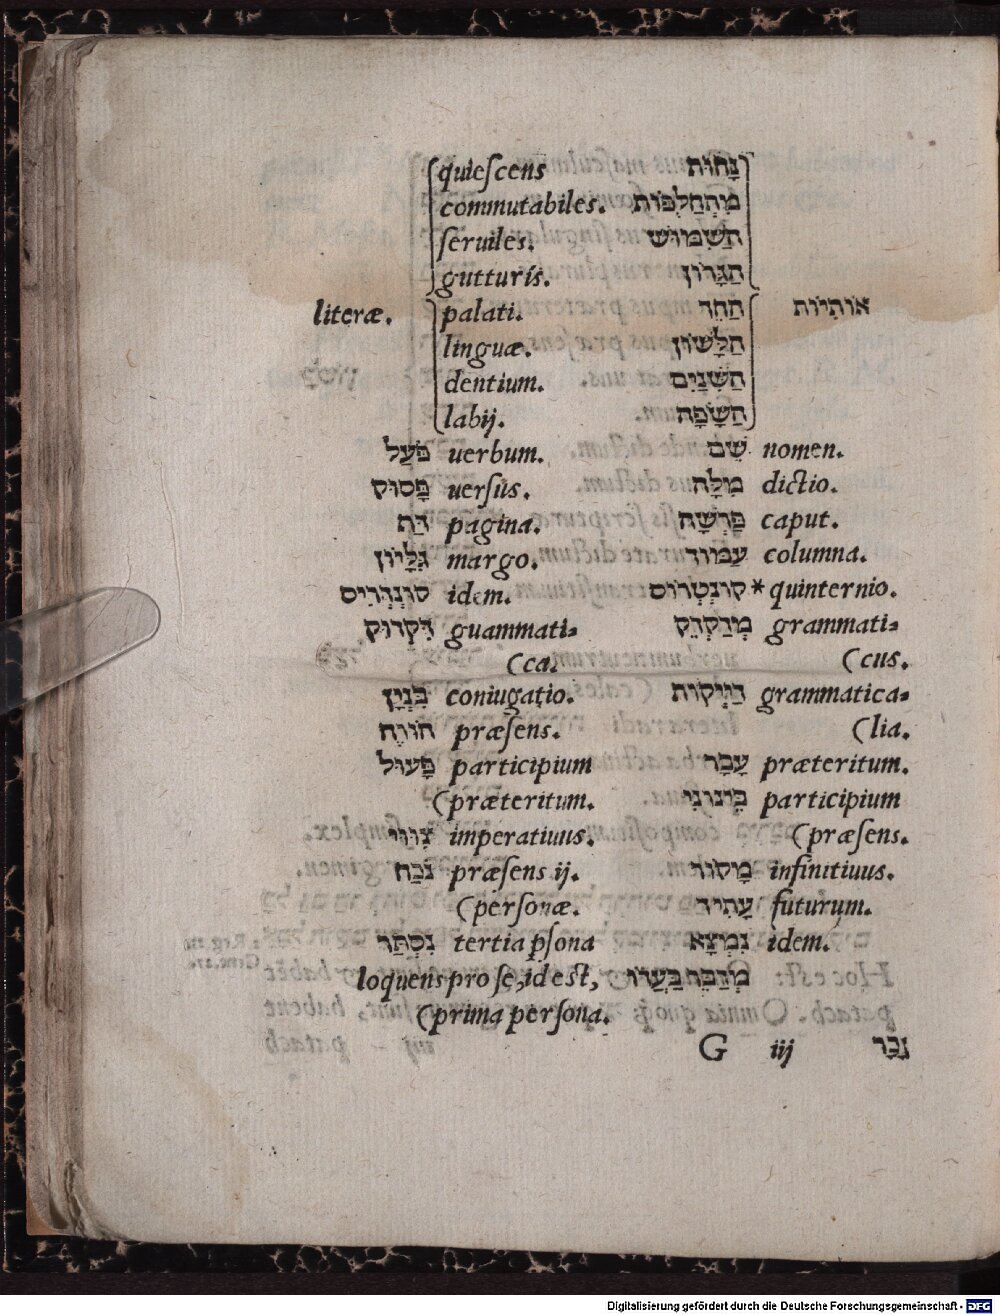 quiescens נָחוֹת
commutabiles. מִתְחַלְפוֹת
seruiles. הַשִׁמּוּשׁ
gutturis. הַגָּרוֹן
literæ. palati. הַחֵךְ אוֹתִיּוֹת
linguæ. הַלָּשׁוֹן
dentium. הַשִׁנַּיִם
labij. הַשָּׂפָה
פֹּעַל uerbum. שֵׁם nomen.
פָּסוּק uersus. מִלָּה dictio.
דַּת pagina. פָּרָשָׁה caput.
גִּלָּיוֹן margo. עַמּוּד columna.
קוּנְדְּרִיס idem. קוּנְטְרוֹס * quinternio.
דִּקְדּוּק guammati⸗ מְדַקְדֵּק grammati⸗
(ca. (cus.
בִּנְיָן coniugatio. דִּיְקוּת grammatica⸗
הֹוֶה præsens. (lia.
פָּעוּל participium עָבַר præteritum.
(præteritum. בֵּינוֹנִי participium
צִוּוּי imperatiuus. (præsens.
נֹכַח præsens ij. מָקוֹר infinitiuus.
(personæ. עָתִיד futurum.
נִסְתָּר tertia psona נִמְצָא idem.
loquens pro se, id est, מְדַבֵּר בַּעֲדוֹ
(prima persona.
G iij נִכַּר
Digitalisierung gefördert durch die Deutsche Forschungsgemeinschaft - DFG